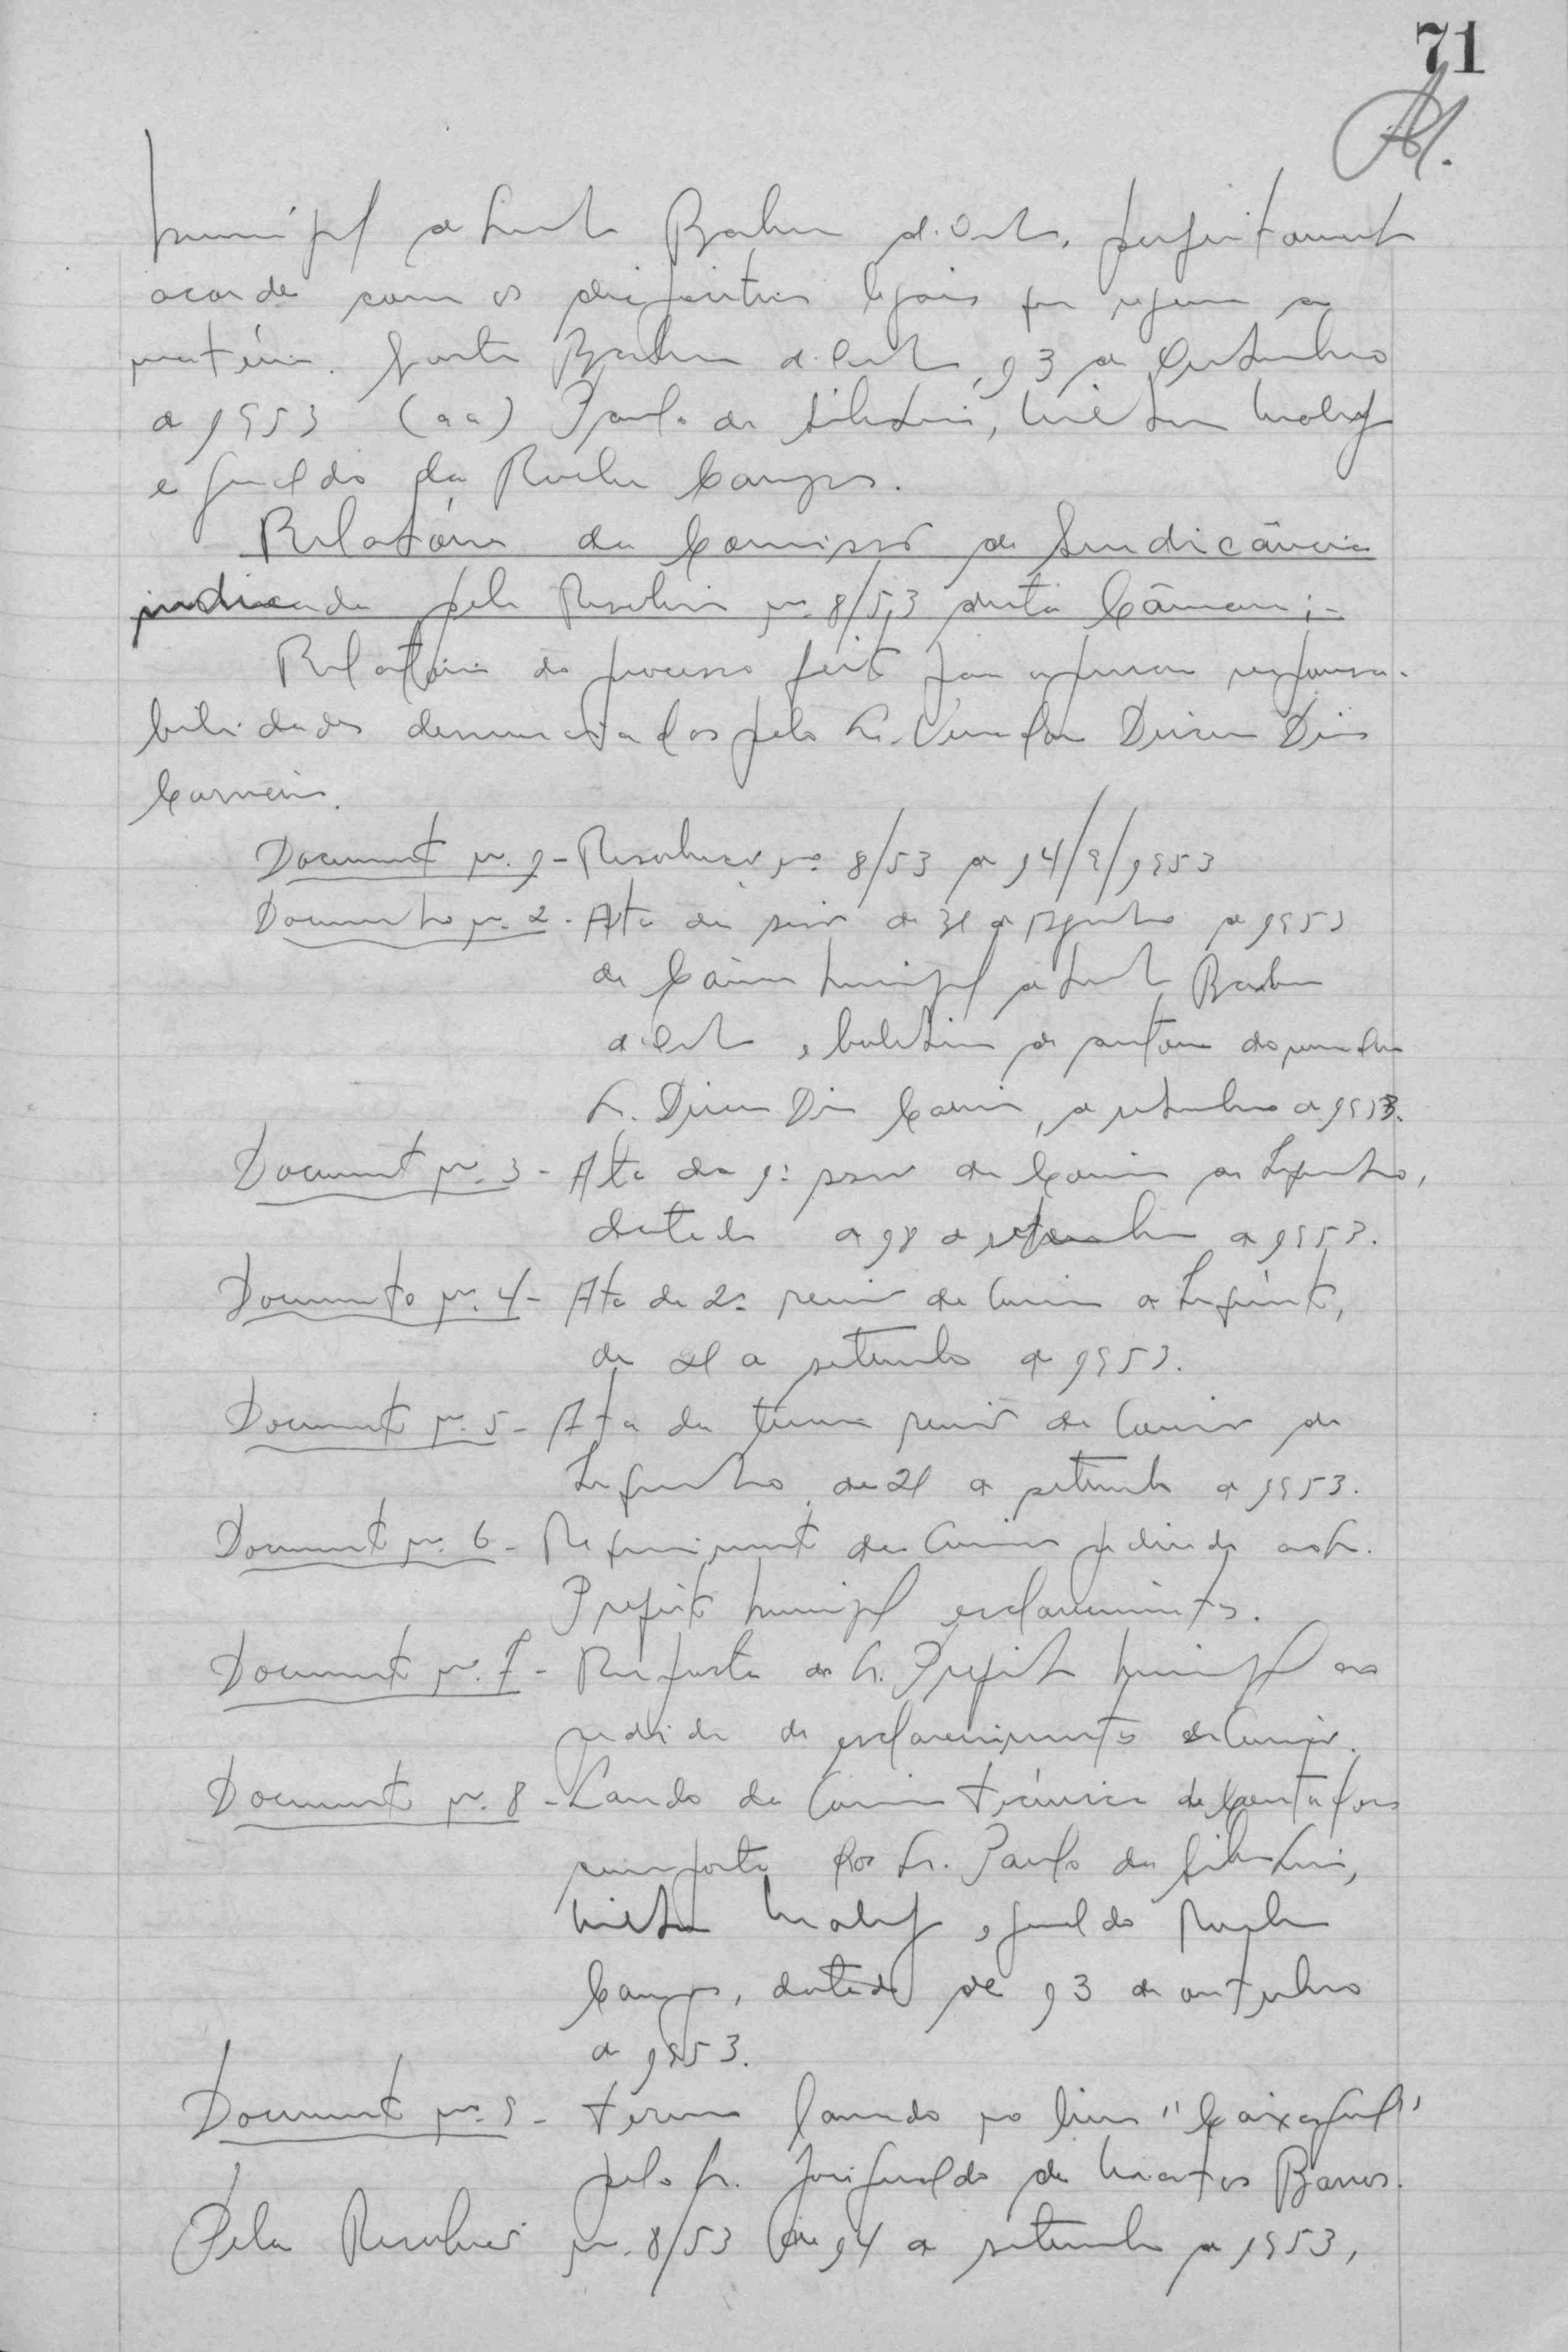 71
Municipal de Santa Barbara d'Oeste, perfeitamente
acorde com os dispositivos legais que regem a
matéria. Santa Barbara d'Oeste, 13 de Outubro
de 1953 (aa) Paulo da Silveira, Milton Maluf
e Geraldo da Rocha Campos.
Relatório da Comissão de Sindicância
indicada pela Resolução nº 8/53 desta Câmara:-
Relatório do processo feito para apurar responsa-
bilidades denunciadas pelo Sr. Vereador Dirceu Dias
Carneiro.
Documento nº 1 - Resolução nº 8/53 de 14/9/1953
Documento nº 2 - Ata da sessão de 31 de Agosto de 1953
da Câmara Municipal de Santa Barbara
d'Oeste, e boletim de autoria do vereador
Sr. Dirceu Dias Carneiro, de setembro de 1953.
Documento nº 3 - Ata da 1ª sessão da Comissão de Inquérito,
datada de 18 de setembro de 1953.
Documento nº 4 - Ata da 2ª reunião da Comissão de Inquérito,
de 21 de setembro de 1953.
Documento nº 5 - Ata da terceira reunião da Comissão de
Inquérito, de 21 de setembro de 1953.
Documento nº 6 - Requerimento da Comissão pedindo ao Sr.
Prefeito Municipal esclarecimentos.
Documento nº 7 - Resposta do Sr. Prefeito Municipal ao
pedido de esclarecimentos da Comissão.
Documento nº 8 - Laudo da Comissão técnica de Contadores
composta dos Sr. Paulo da Silveira,
Milton Maluf e Geraldo Rocha
Campos, datado de 13 de outubro
de 1953.
Documento nº 9 - Termo lavrado no livro "Caixa geral"
pelo Sr. José Geraldo de Mattos Barros.
Pela Resolução nº 8/53 de 14 de setembro de 1953,